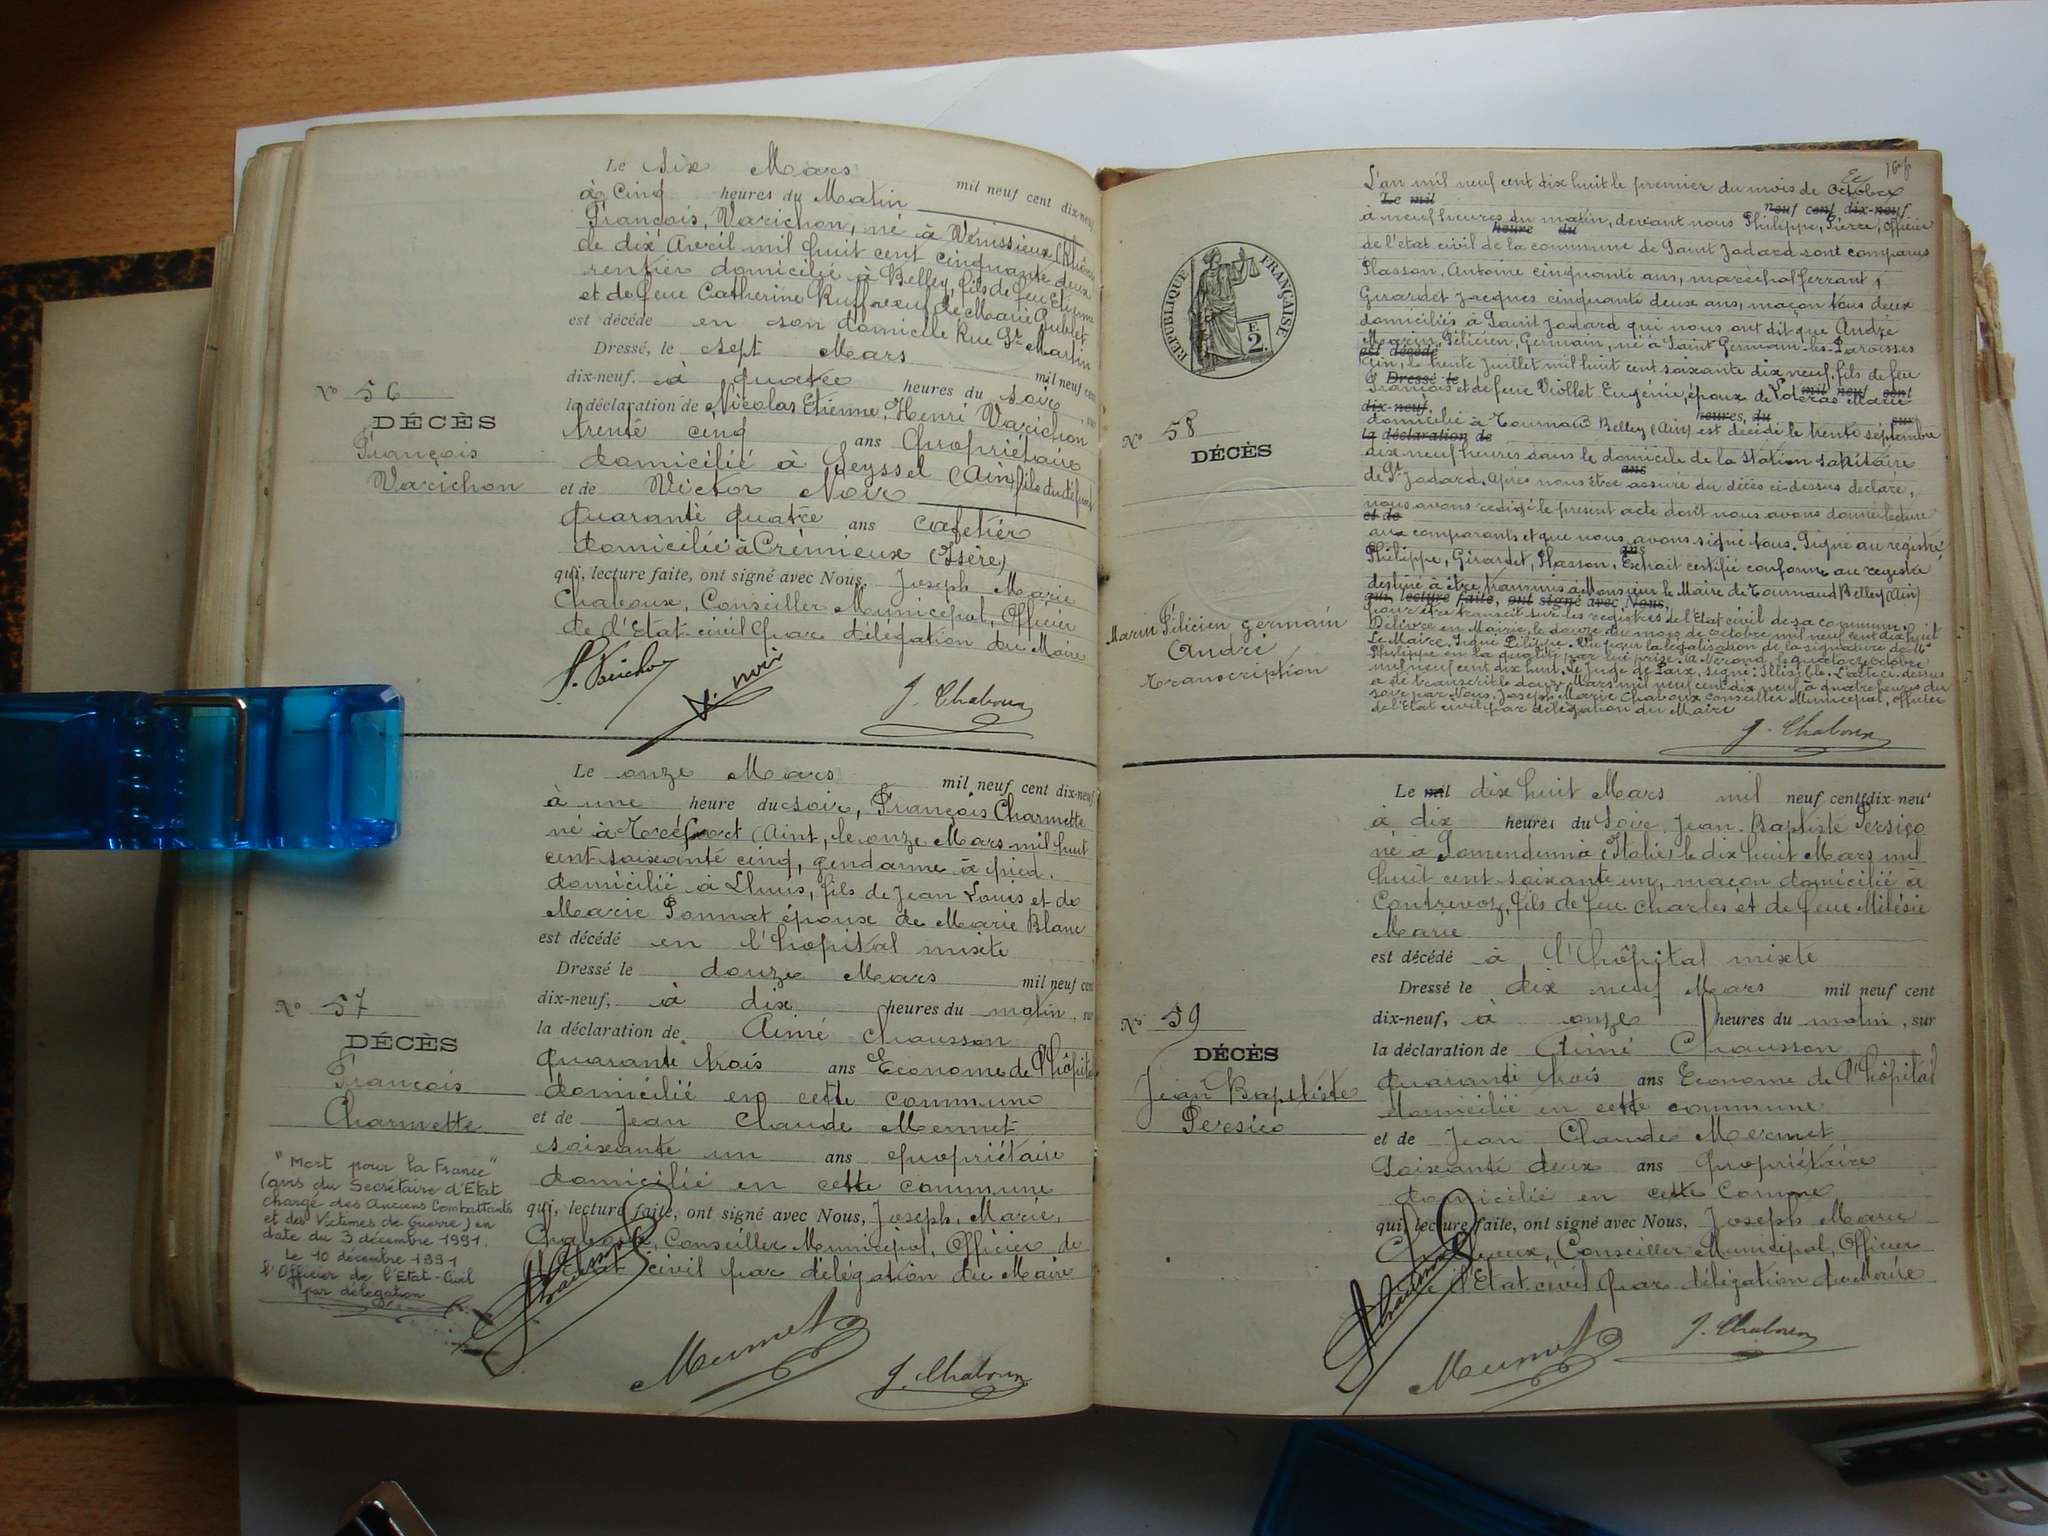 Le six Mars mil neuf cent dix-neuf
à cinq heures du Matin
François, Varichon, né à Vénissieux (Rhône
le dix Avril mil huit cent cinquante deux
rentier domicilié à Belley, fils de feu Etienne
et de feue Catherine Ruff veuf de Marie Gublet
est décédé en son domicile Rue St Martin
Dressé, le sept Mars mil neuf cent
dix-neuf. à quatre heures du soir, sur
la déclaration de Nicolas Etienne, Henri Varichon
trente cinq ans Propriétaire
domicilié à Seyssel (Ain) fils du défunt
et de Victor Noir
quarante quatre ans cafetier
domicilié à Crémieux (Isère)
qui, lecture faite, ont signé avec Nous, Joseph Marie
Chaboux, Conseiller Municipal, Officier
de l'Etat civil par délégation du Maire
V. noir
J. Chaboux
No 56
DÉCÈS
François
Varichon
Le onze Mars mil neuf cent dix-neuf
à une heure du soir, François Charmette
né à (Ain), le onze Mars mil huit
cent soixante cinq, gendarme à pied.
domicilié à Lhuis, fils de Jean Louis et de
Marie Ponnat époux de Marie Blanc
est décédé en l'hopital mixte
Dressé le douze Mars mil neuf cent
dix-neuf, à dix heures du matin, sur
la déclaration de Aimé Chausson
quarante trois ans Econome de l'hôpital
domicilié en cette commune
et de Jean Claude Mermet
soixante un ans propriétaire
domicilié en cette commune
qui, lecture faite, ont signé avec Nous, Joseph, Marie,
Chaboux, Conseiller Municipal, Officier de
l'Etat civil par délégation du Maire
Chausson
Mermet
J. Chaboux
No 57
DÉCÈS
François
Charmette
"Mort pour la France"
(avis du Secrétaire d'Etat
chargé des Anciens Combattants
et des Victimes de Guerre) en
date du 3 décembre 1991.
Le 10 décembre 1991
l'Officier de l'Etat-Civil
par délégation
RÉPUBLIQUE FRANÇAISE
E
2.
L'an mil neuf cent dix huit le premier du mois de Octobre
Le mil neuf cent dix-neuf
à neuf heures du matin, devant nous Philippe, Pierre, Officier
heure du
de l'état civil de la commune de Saint Jodard sont comparus
Plasson, Antoine cinquante ans, maréchal ferrant,
Girardet Jacques cinquante deux ans, maçon tous deux
domiciliés à Saint Jodard qui nous ont dit que André
Marin, Félicien, Germain, né à Saint Germain-les-Paroisses
est décédé
Ain, le trente Juillet mil huit cent soixante dix neuf, fils de feu
Dressé le mil neuf cent
François et de feue Viollet Eugénie, époux de Marie
dix-neuf. heures, du sur
domicilié à Tournand Belley (Ain) est décédé le trente septembre
la déclaration de
dix neuf heures dans le domicile de la station sanitaire
ans
de St Jodard. Après nous être assuré du décès ci-dessus déclaré,
nous avons rédigé le présent acte dont nous avons donné lecture
et de
aux comparants et que nous avons signé tous. Signé au registre
ans
Philippe, Girardet, Plasson. Extrait certifié conforme au registre
destiné à être transmis à Monsieur le Maire de Tournand Belley (Ain)
qui, lecture faite, ont signé avec Nous,
pour être transcrit sur les registres de l'Etat civil de sa commune.
Délivré en Mairie, le douze du mois de octobre mil neuf cent dix huit
Le Maire. Signé Philippe. Vu pour la légalisation de la signature de Mr
Philippe en la qualité par lui prise. A Néronde, le quatorze octobre
mil neuf cent dix huit. Le Juge de Paix, signé: Illisible. L'acte ci-dessus
a été transcrit le douze Mars mil neuf cent dix neuf à quatre heures du
soir par Nous, Joseph Marie Chaboux Conseiller Municipal, Officier
de l'Etat civil par délégation du Maire
J. Chaboux
No 58
DÉCÈS
Marin Félicien Germain
André
Transcription
Le mil dix huit Mars mil neuf cent dix-neuf
à dix heures du Soir Jean-Baptiste Persico
né à (Italie) le dix huit Mars mil
huit cent soixante un, maçon domicilié à
Contrevoz, fils de feu Charles et de feue Milésie
Marie
est décédé à l'hôpital mixte
Dressé le dix neuf Mars mil neuf cent
dix-neuf, à onze heures du matin, sur
la déclaration de Aimé Chausson
quarante trois ans Econome de l'hôpital
domicilié en cette commune
et de Jean Claude Mermet
soixante deux ans Propriétaire
domicilié en cette Comune
qui lecture faite, ont signé avec Nous, Joseph Marie
Chaboux, Conseiller Municipal, Officier
de l'Etat civil par délégation du Maire
Chausson
Mermet
J. Chaboux
No 59
DÉCÈS
Jean Baptiste
Persico